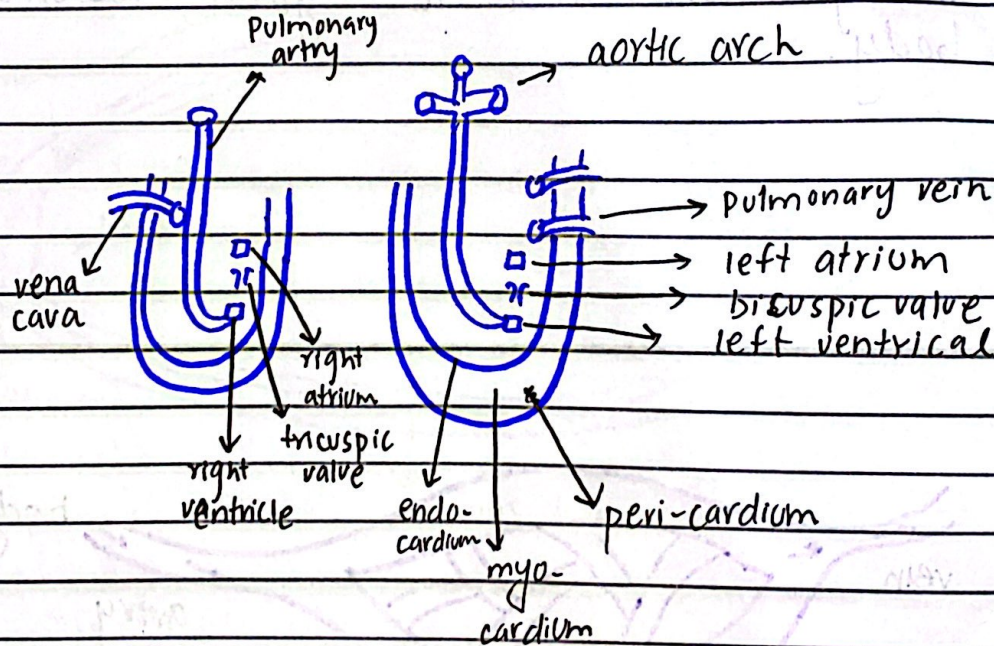 Pulmonary
artry
aortic arch
pulmonary vein
vena
cava
left atrium
bicuspic value
left ventrical
right
atrium
tricuspic
valve
right
ventricle
endo-
cardium
peri-cardium
myo-
cardium